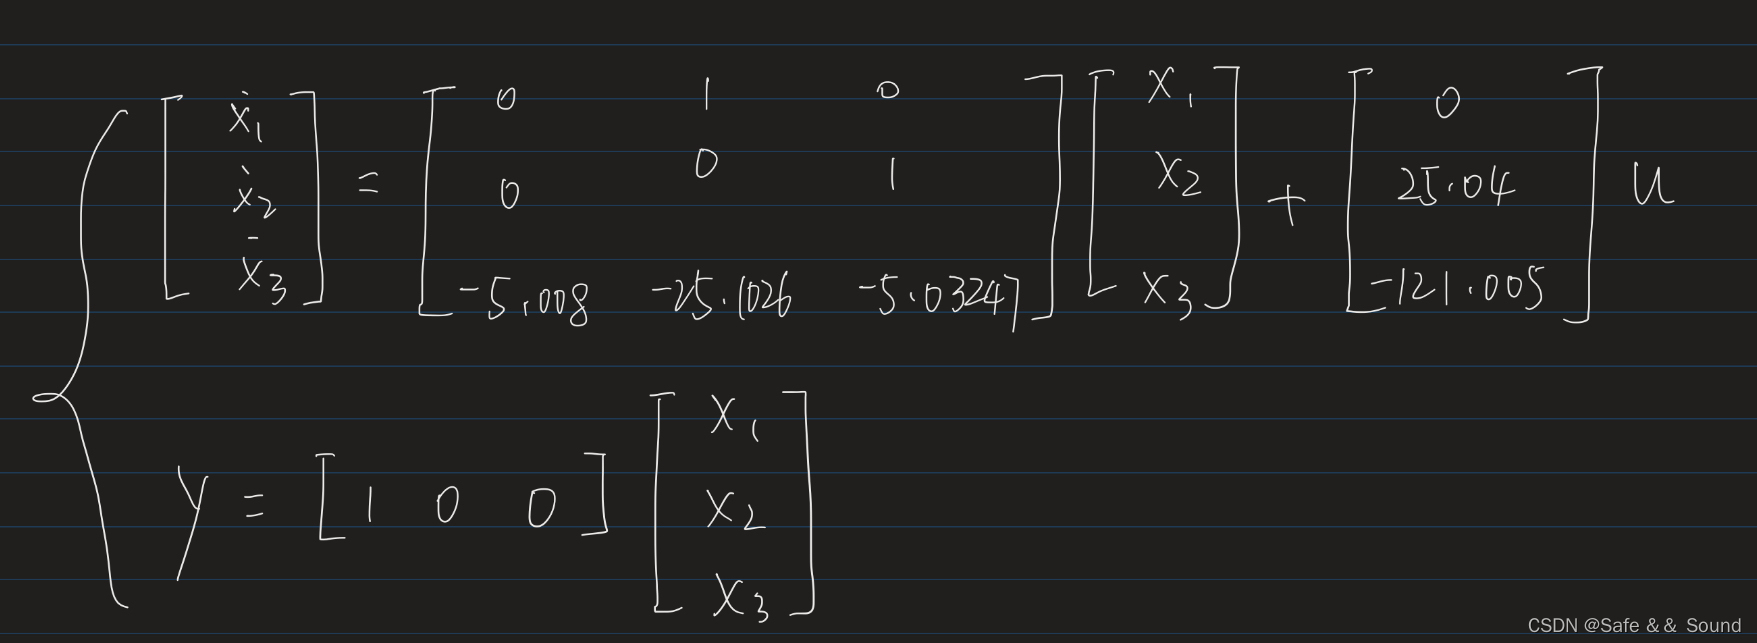 [ẋ₁ ẋ₂ ẋ₃] = [0 1 0; 0 0 1; -5.008 -25.1026 -5.03247] [x₁ x₂ x₃] + [0 25.04 -121.005] u
y = [1 0 0] [x₁ x₂ x₃]
CSDN @Safe && Sound